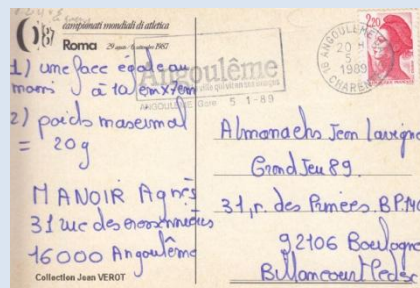 campionati mondiali di atletica
87
Roma 29 agosto / 6 settembre 1987
1) une face égale au
moins à 10 cm x 7 cm
2) poids maximal
= 20g
MANOIR Agnès
31 rue des
16000 Angoulême
Collection Jean VEROT
Angoulême
ANGOULEME Gare 5 1-89
16 ANGOULEME
20 H
5
1989
CHARENTE
2,20
Almanachs Jean Lavigne
Grand Jeu 89
31, r. des B.P.
92106 Boulogne
Billancourt Cedex